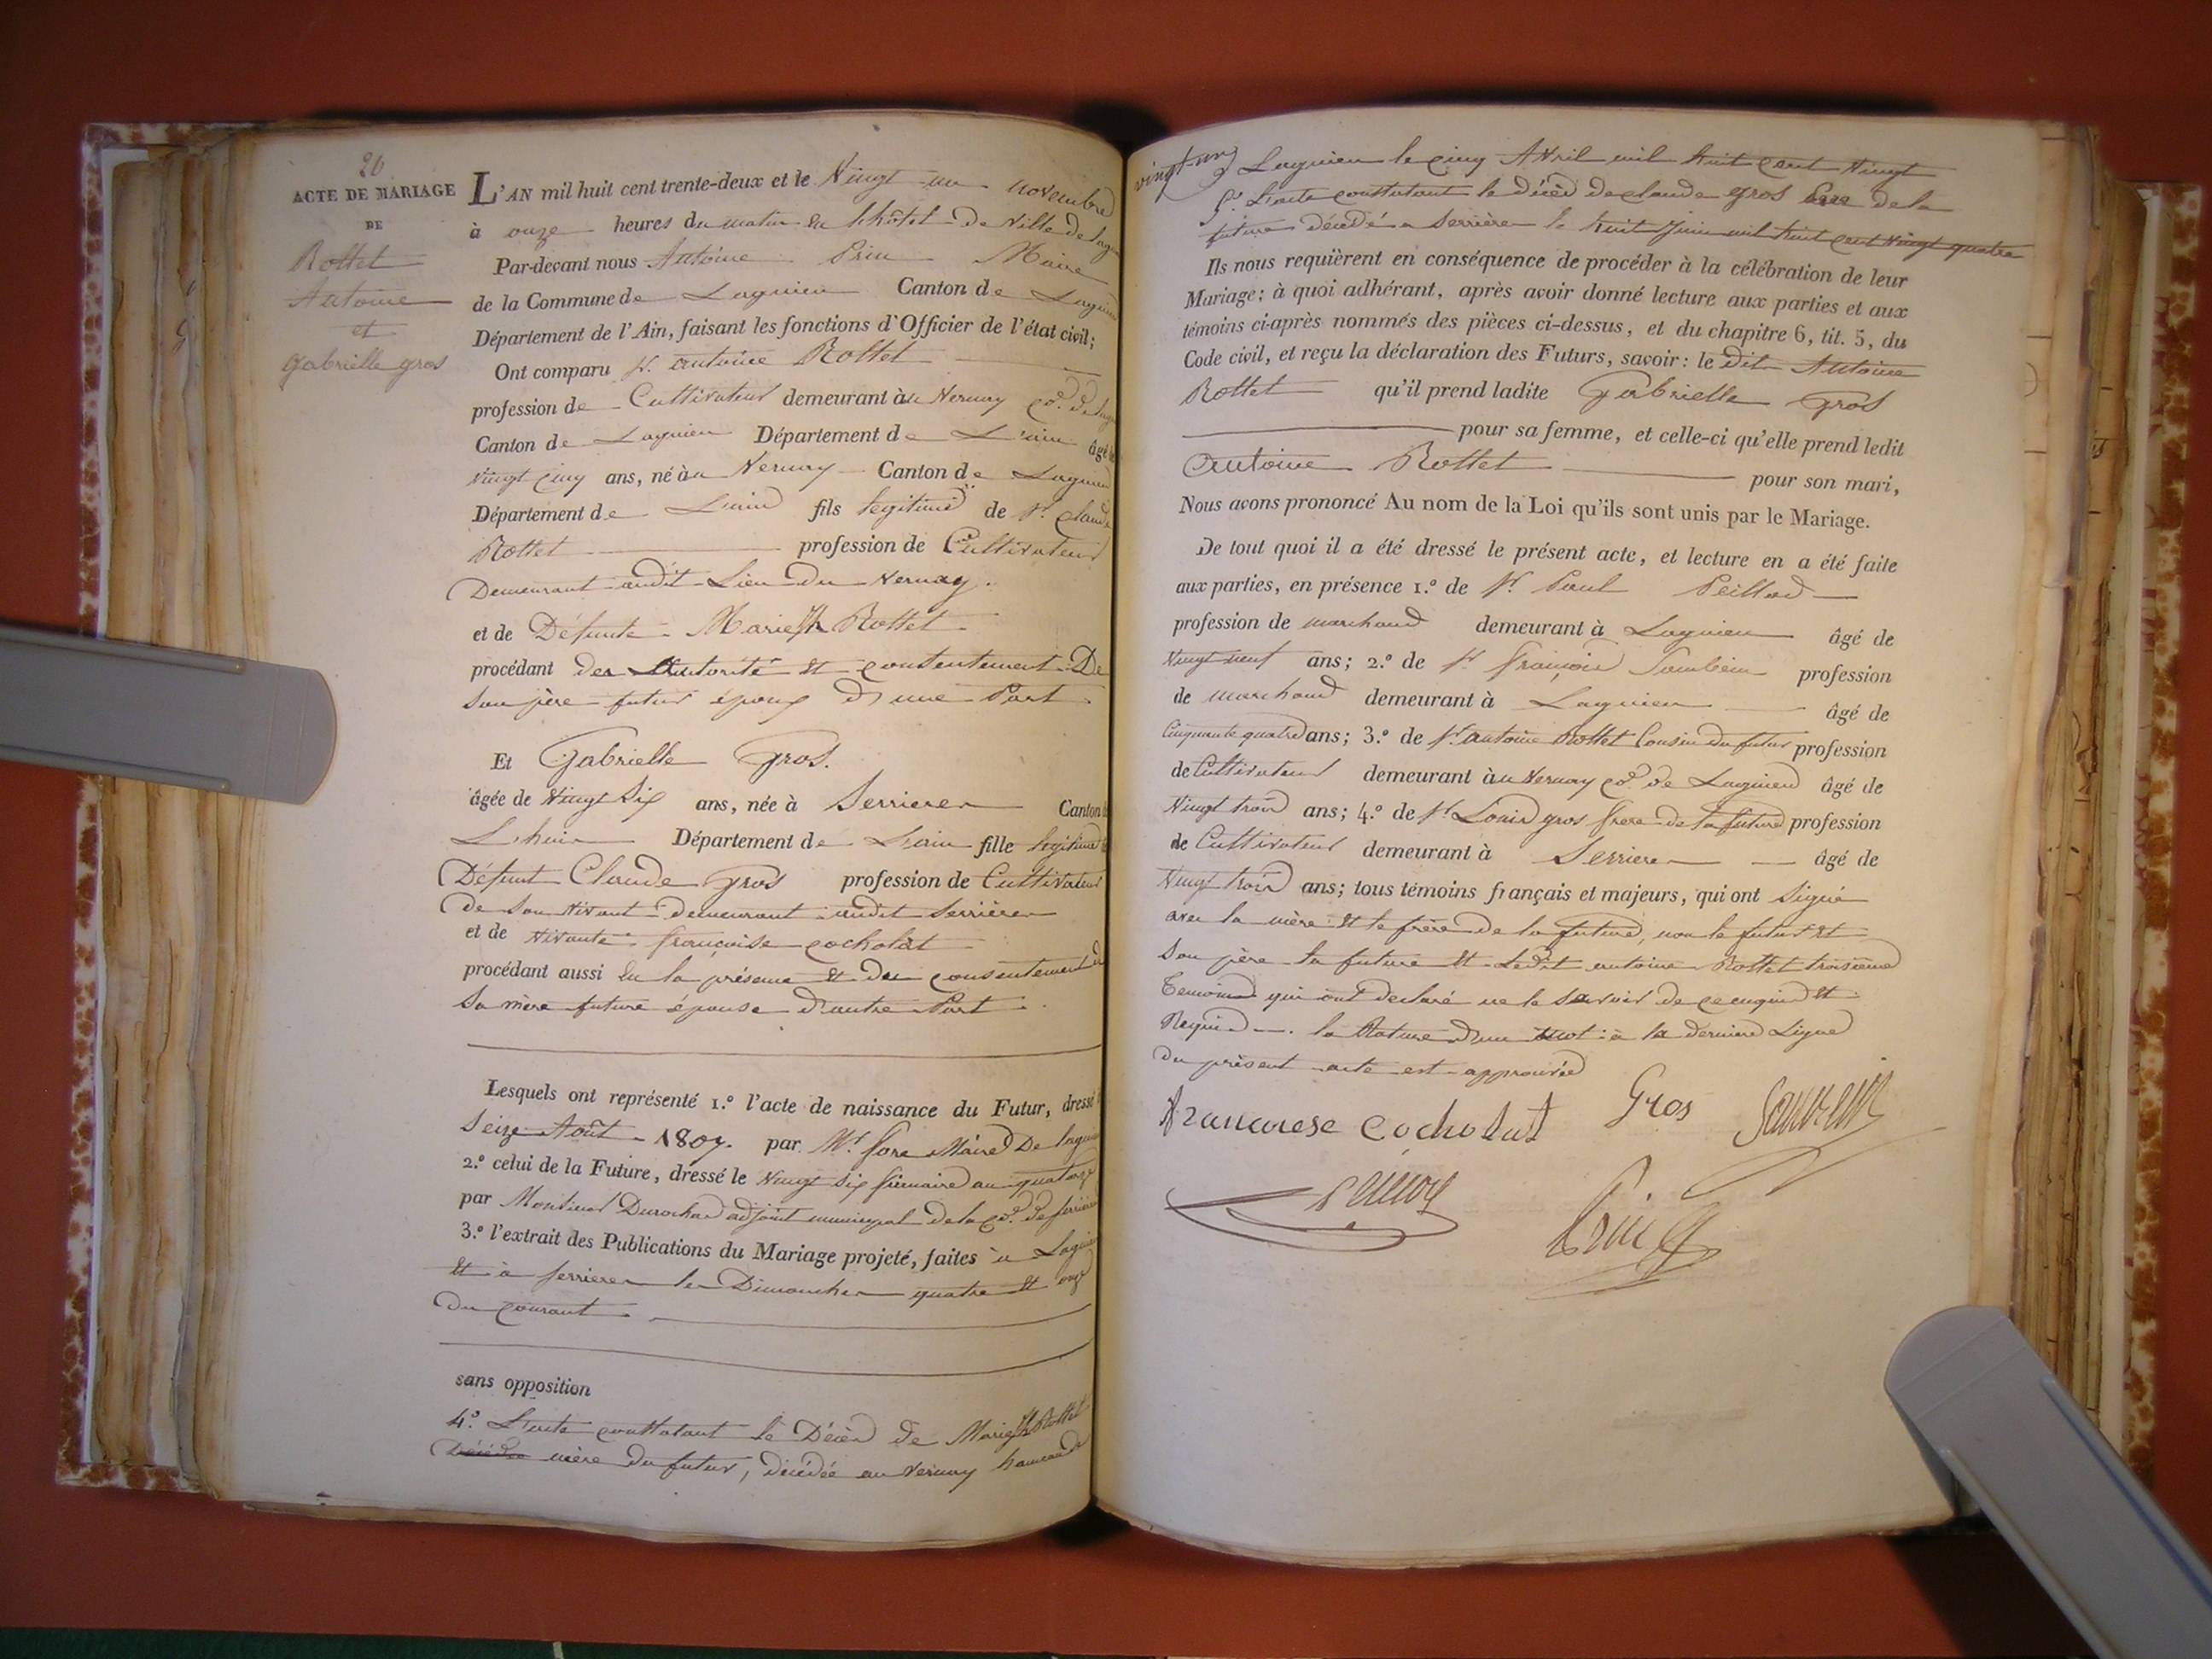 20
ACTE DE MARIAGE
DE
Rottet
Antoine
et
gabrielle gros
L'AN mil huit cent trente-deux et le Vingt un novembre
à onze heures du matin en l'hôtel de Ville de
Par-devant nous Antoine Prin Maire
de la Commune de Lagnieu Canton de Lagnieu
Département de l'Ain, faisant les fonctions d'Officier de l'état civil;
Ont comparu Sr. antoine Rottet
profession de Cultivateur demeurant à u Vernay Cne. de
Canton de Lagnieu Département de L'ain âgé de
Vingt cinq ans, né à u Vernay Canton de Lagnieu
Département de L'ain fils legitime de Sr. Claude
Rottet profession de Cultivateur
Demeurant audit Lieu du Vernay.
et de Défunte Marie Rottet
procédant des autorité et contentement De
Son père futur époux d'une Part
Et Gabrielle Gros.
âgée de Vingt Six ans, née à Serrieres Canton de
Lhuis Département de L'ain fille legitime de
Défunt Claude Gros profession de Cultivateur
de Son Vivant demeurant audit Serrières
et de vivante françoise cocholat
procédant aussi En la présence et du consentement de
Sa mère future épouse d'autre Part.
Lesquels ont représenté 1.º l'acte de naissance du Futur, dressé
Seize Août 1807. par Mr. fore Maire De
2.º celui de la Future, dressé le Vingt Six frimaire an quatorze
par Monsieur Durochat adjoint municipal de la Cne. de Serrieres
3.º l'extrait des Publications du Mariage projeté, faites à Lagnieu
Et à serrieres les Dimanches quatre et onze
Du courant
sans opposition
4.º L'acte constatant le Décès de Marie Rottet
mère du futur, décédée au Vernay hameau de
vingt un
Lagnieu le cinq Avril mil huit cent Vingt
5.º L'acte constatant le décès de claude gros père de la
future décédé a Serrières le huit Juin mil huit cent vingt quatre
Ils nous requièrent en conséquence de procéder à la célébration de leur
Mariage; à quoi adhérant, après avoir donné lecture aux parties et aux
témoins ci-après nommés des pièces ci-dessus, et du chapitre 6, tit. 5, du
Code civil, et reçu la déclaration des Futurs, savoir: le Dit Antoine
Rottet qu'il prend ladite Gabrielle Gros
pour sa femme, et celle-ci qu'elle prend ledit
Antoine Rottet pour son mari,
Nous avons prononcé Au nom de la Loi qu'ils sont unis par le Mariage.
De tout quoi il a été dressé le présent acte, et lecture en a été faite
aux parties, en présence 1.º de Sr. Paul Peillod
profession de marchand demeurant à Lagnieu âgé de
Vingt neuf ans; 2.º de Sr françois profession
de marchand demeurant à Lagnieu âgé de
Cinquante quatre ans; 3.º de Sr. antoine Rottet Cousin du futur profession
de Cultivateur demeurant à u Vernay Cne. de Lagnieu âgé de
Vingt trois ans; 4.º de Sr. Louis gros frere de la future profession
de Cultivateur demeurant à Serrieres âgé de
Vingt trois ans; tous témoins français et majeurs, qui ont Signé
avec la mère et le frère de la future, non le futur et
Son père la future et Ledit antoine Rottet troisième
Temoins qui ont declaré ne le Savoir de ce enquis et
Requis. la Rature d'un mot à la derniere Ligne
du présent acte est approuvée
francoise cocholat Gros
Prin